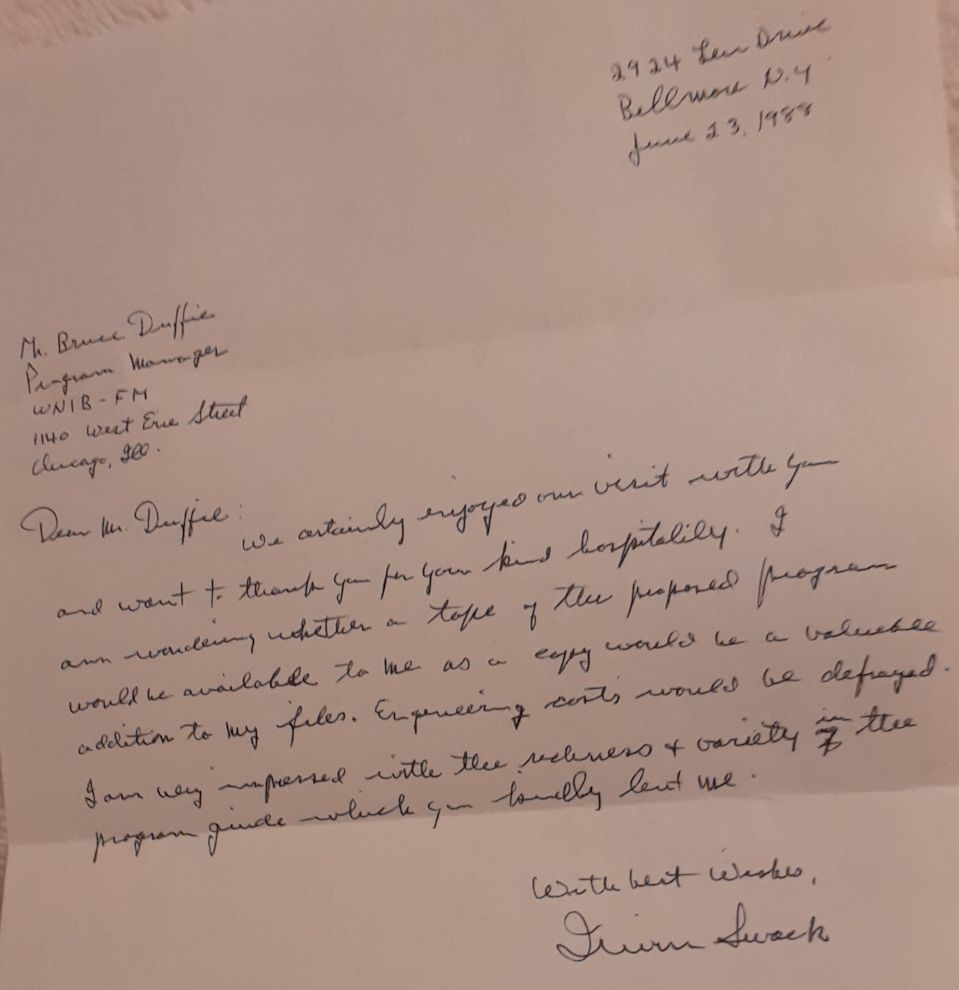 2924 Len Drive
Bellmore N.Y.
June 23, 1988
Mr. Bruce Duffie
Program Manager
WNIB-FM
1140 West Erie Street
Chicago, Ill.
Dear Mr. Duffie:
We certainly enjoyed our visit with you
and want to thank you for your kind hospitality. I
am wondering whether a tape of the proposed program
would be available to me as a copy would be a valuable
addition to my files. Engineering costs would be defrayed.
I am very impressed with the richness + variety in the
program guide which you kindly lent me.
With best wishes,
Irwin Swack